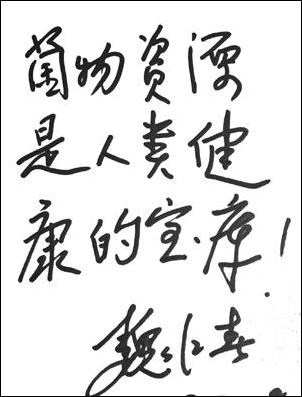 菌物资源
是人类健
康的宝库！
魏江春